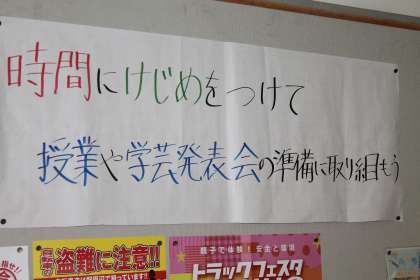 時間にけじめをつけて
授業や学芸発表会の準備に取り組もう
盗難に注意!!
親子で体験!安全と環境
トラックフェスタ